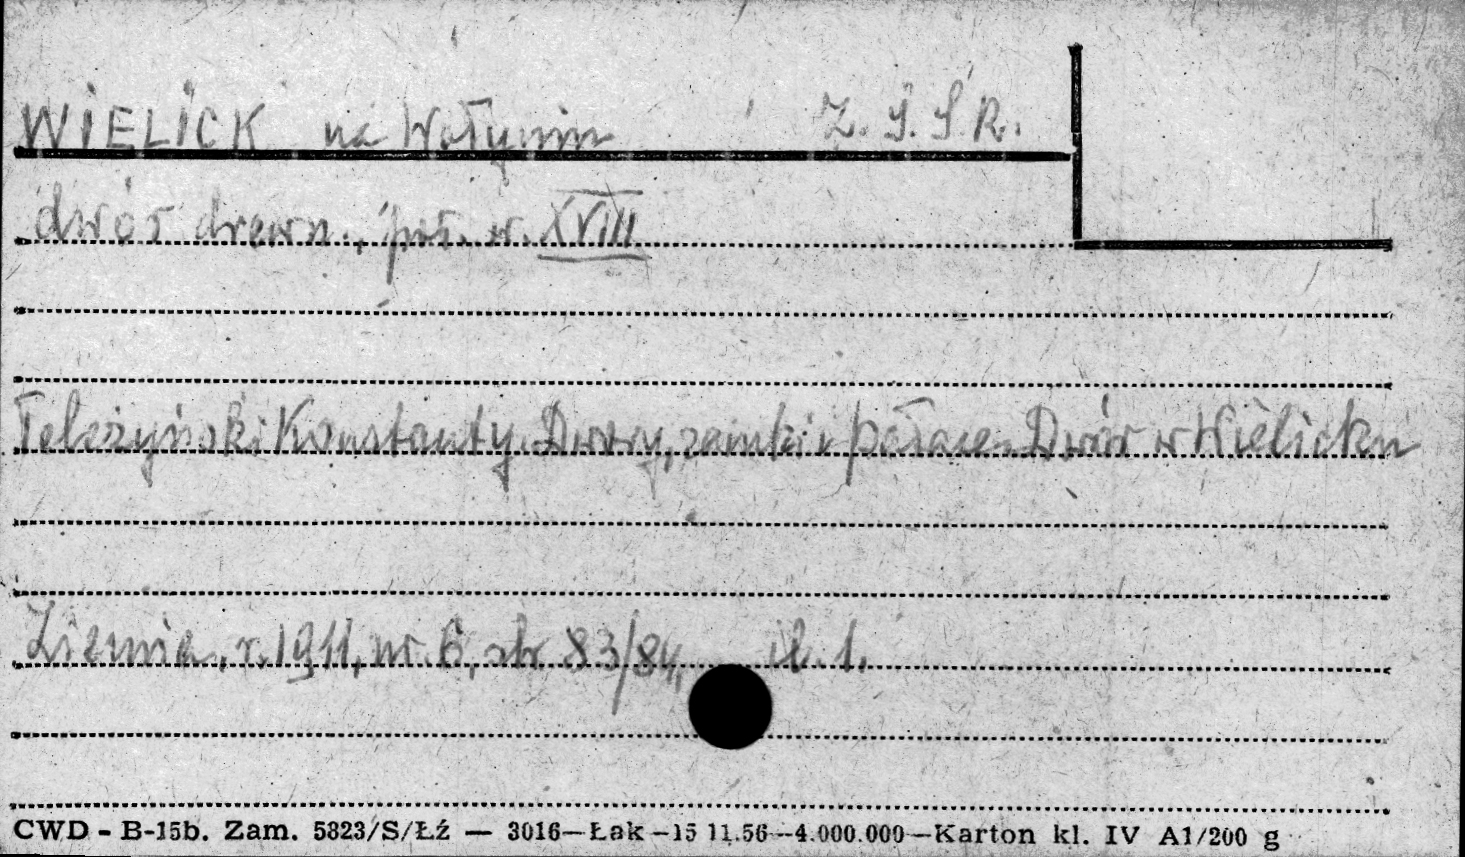 WIELICK na Wołyniu Z.S.S.R.
dwór drewn., poł. w. XVIII
Teleżyński Konstanty. Dwory, zamki i pałace. Dwór w Wielicku
Ziemia, r. 1911, nr. 6, str 83/84, il. 1.
CWD - B-15b. Zam. 5823/S/Łź — 3016—Łak —15 11.56—4.000.000—Karton kl. IV A1/200 g